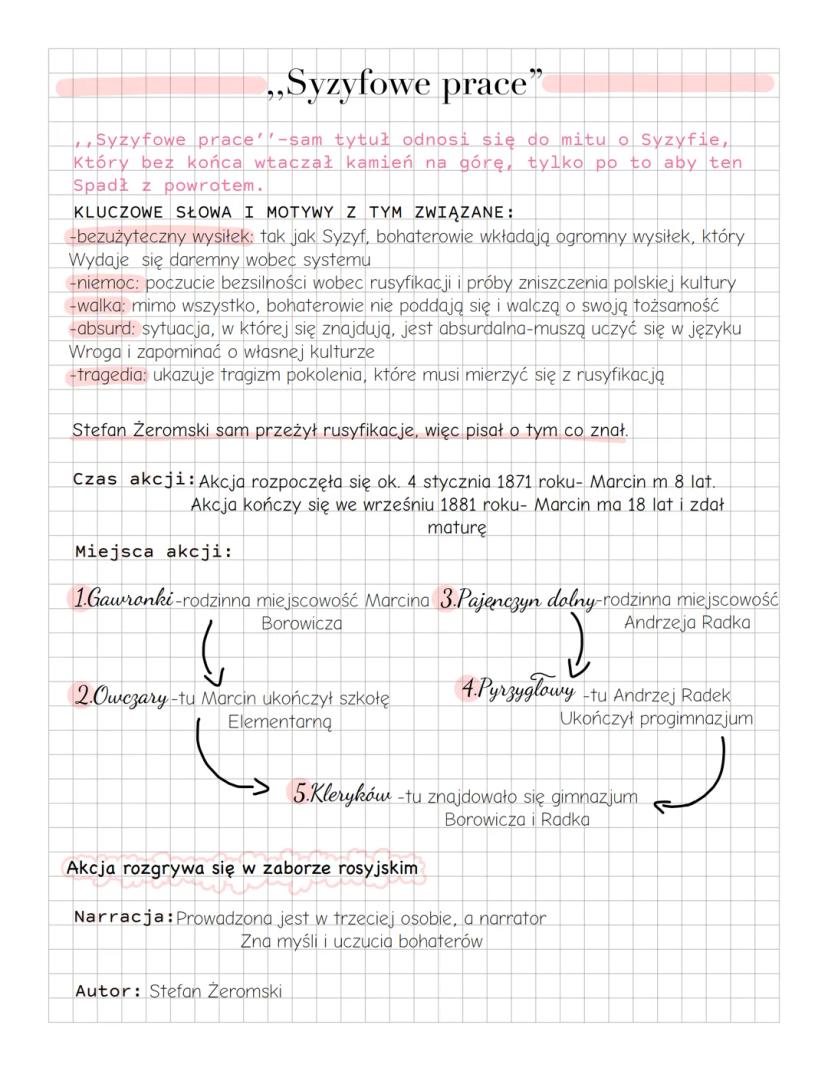 ,,Syzyfowe prace”
,,Syzyfowe prace’’-sam tytuł odnosi się do mitu o Syzyfie,
Który bez końca wtaczał kamień na górę, tylko po to aby ten
Spadł z powrotem.
KLUCZOWE SŁOWA I MOTYWY Z TYM ZWIĄZANE:
-bezużyteczny wysiłek: tak jak Syzyf, bohaterowie wkładają ogromny wysiłek, który
Wydaje się daremny wobec systemu
-niemoc: poczucie bezsilności wobec rusyfikacji i próby zniszczenia polskiej kultury
-walka: mimo wszystko, bohaterowie nie poddają się i walczą o swoją tożsamość
-absurd: sytuacja, w której się znajdują, jest absurdalna-muszą uczyć się w języku
Wroga i zapominać o własnej kulturze
-tragedia: ukazuje tragizm pokolenia, które musi mierzyć się z rusyfikacją
Stefan Żeromski sam przeżył rusyfikacje, więc pisał o tym co znał.
Czas akcji: Akcja rozpoczęła się ok. 4 stycznia 1871 roku- Marcin m 8 lat.
Akcja kończy się we wrześniu 1881 roku- Marcin ma 18 lat i zdał
maturę
Miejsca akcji:
1.Gawronki-rodzinna miejscowość Marcina
Borowicza
3.Pajęnczyn dolny-rodzinna miejscowość
Andrzeja Radka
2.Owczary-tu Marcin ukończył szkołę
Elementarną
4.Pyrzygłowy -tu Andrzej Radek
Ukończył progimnazjum
5.Kleryków -tu znajdowało się gimnazjum
Borowicza i Radka
Akcja rozgrywa się w zaborze rosyjskim
Narracja:Prowadzona jest w trzeciej osobie, a narrator
Zna myśli i uczucia bohaterów
Autor: Stefan Żeromski